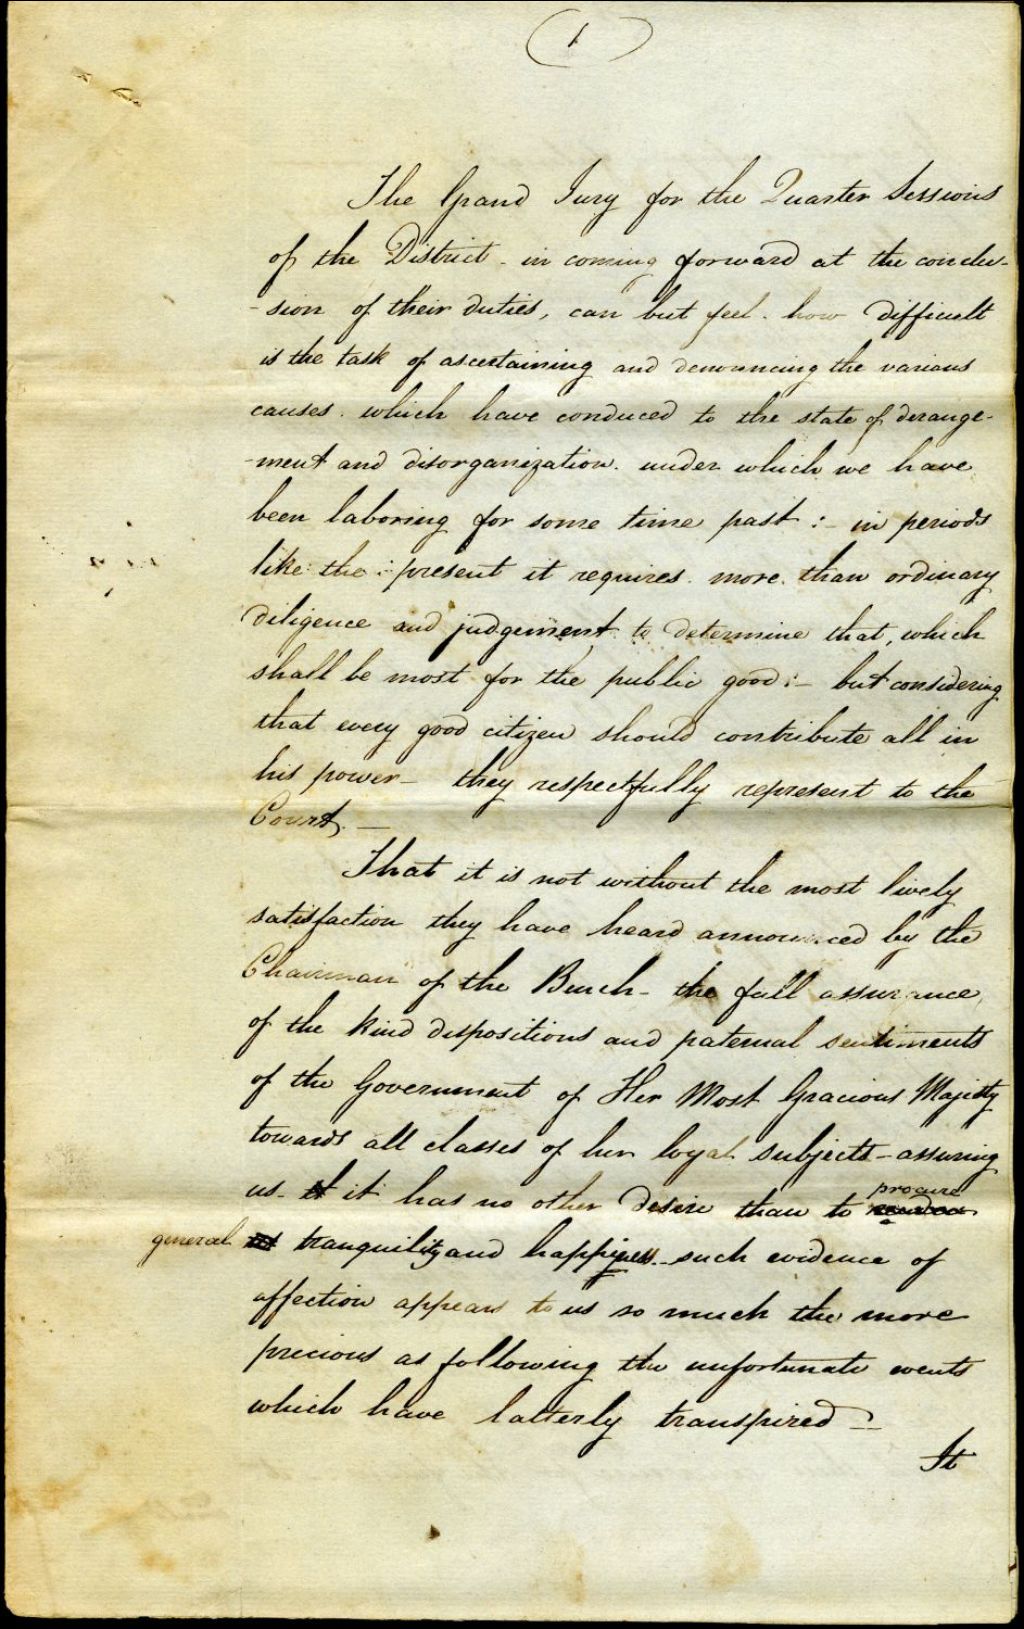 (1)
The Grand Jury for the Quarter Sessions
of the District - in coming forward at the conclu-
-sion of their duties, can but feel. how difficult
is the task of ascertaining and denouncing the various
causes. which have conduced to the state of derange-
-ment and disorganization. under which we have
been laboring for some time past :- in periods
like the present it requires. more. than ordinary
diligence and judgement to determine that, which
shall be most for the public good :- but considering
that every good citizen should contribute all in
his power - they respectfully represent to the
Court. —
That it is not without the most lively
satisfaction they have heard announced by the
Chairman of the Bench - the full assurance
of the kind dispositions and paternal sentiments
of the Government of Her Most Gracious Majesty
towards all classes of her loyal subjects - assuring
procure
us - it has no other desire than to render
general tranquility and happiness - such evidence of
affection appears to us so much the more
precious as following the unfortunate events
which have latterly transpired —
It